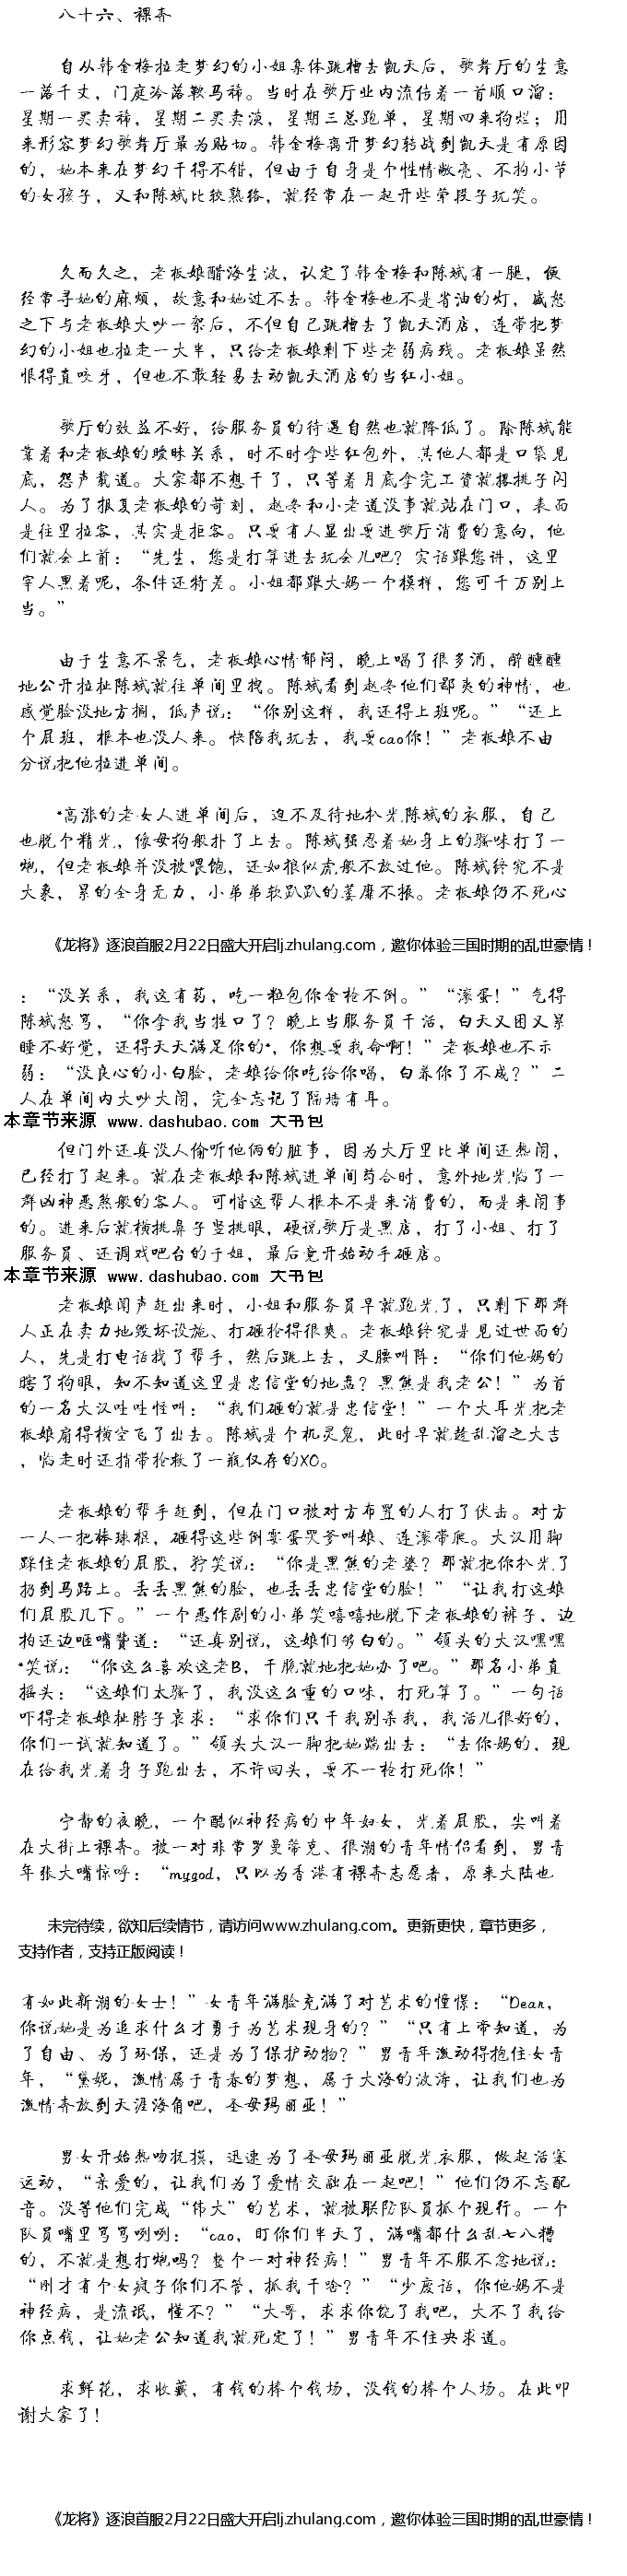 八十六、裸奔
自从韩金梅拉走梦幻的小姐集体跳槽去凯天后，歌舞厅的生意
一落千丈，门庭冷落鞍马稀。当时在歌厅业内流传着一首顺口溜：
星期一买卖稀，星期二买卖淡，星期三总跑单，星期四来拘烂；用
来形容梦幻歌舞厅最为贴切。韩金梅离开梦幻转战到凯天是有原因
的，她本来在梦幻干得不错，但由于自身是个性情敞亮、不拘小节
的女孩子，又和陈斌比较熟络，就经常在一起开些荤段子玩笑。
久而久之，老板娘醋海生波，认定了韩金梅和陈斌有一腿，便
经常寻她的麻烦，故意和她过不去。韩金梅也不是省油的灯，盛怒
之下与老板娘大吵一架后，不但自己跳槽去了凯天酒店，连带把梦
幻的小姐也拉走一大半，只给老板娘剩下些老弱病残。老板娘虽然
恨得直咬牙，但也不敢轻易去动凯天酒店的当红小姐。
歌厅的效益不好，给服务员的待遇自然也就降低了。除陈斌能
靠着和老板娘的暧昧关系，时不时拿些红包外，其他人都是口袋见
底，怨声载道。大家都不想干了，只等着月底拿完工资就撂挑子闪
人。为了报复老板娘的苛刻，赵冬和小老道没事就站在门口，表面
是往里拉客，其实是拒客。只要有人显出要进歌厅消费的意向，他
们就会上前：“先生，您是打算进去玩会儿吧？实话跟您讲，这里
宰人黑着呢，条件还特差。小姐都跟大妈一个模样，您可千万别上
当。”
由于生意不景气，老板娘心情郁闷，晚上喝了很多酒，醉醺醺
地公开拉扯陈斌就往单间里拽。陈斌看到赵冬他们鄙夷的神情，也
感觉脸没地方搁，低声说：“你别这样，我还得上班呢。”“还上
个屁班，根本也没人来。快陪我玩去，我要cao你！”老板娘不由
分说把他拉进单间。
*高涨的老女人进单间后，迫不及待地扒光陈斌的衣服，自己
也脱个精光，像母狗般扑了上去。陈斌强忍着她身上的骚味打了一
炮，但老板娘并没被喂饱，还如狼似虎般不放过他。陈斌终究不是
大象，累的全身无力，小弟弟软趴趴的萎靡不振。老板娘仍不死心
《龙将》逐浪首服2月22日盛大开启lj.zhulang.com，邀你体验三国时期的乱世豪情！
：“没关系，我这有药，吃一粒包你金枪不倒。”“滚蛋！”气得
陈斌怒骂，“你拿我当牲口了？晚上当服务员干活，白天又困又累
睡不好觉，还得天天满足你的*，你想要我命啊！”老板娘也不示
弱：“没良心的小白脸，老娘给你吃给你喝，白养你了不成？”二
人在单间内大吵大闹，完全忘记了隔墙有耳。
本章节来源 www.dashubao.com 大书包
但门外还真没人偷听他俩的脏事，因为大厅里比单间还热闹，
已经打了起来。就在老板娘和陈斌进单间苟合时，意外地光临了一
群凶神恶煞般的客人。可惜这帮人根本不是来消费的，而是来闹事
的。进来后就横挑鼻子竖挑眼，硬说歌厅是黑店，打了小姐、打了
服务员、还调戏吧台的于姐，最后竟开始动手砸店。
本章节来源 www.dashubao.com 大书包
老板娘闻声赶出来时，小姐和服务员早就跑光了，只剩下那群
人正在卖力地毁坏设施、打砸抢得很爽。老板娘终究是见过世面的
人，先是打电话找了帮手，然后跳上去，叉腰叫阵：“你们他妈的
瞎了狗眼，知不知道这里是忠信堂的地盘？黑熊是我老公！”为首
的一名大汉哇哇怪叫：“我们砸的就是忠信堂！”一个大耳光把老
板娘扇得横空飞了出去。陈斌是个机灵鬼，此时早就趁乱溜之大吉
，临走时还捎带抢救了一瓶仅存的XO。
老板娘的帮手赶到，但在门口被对方布置的人打了伏击。对方
一人一把棒球棍，砸得这些倒霉蛋哭爹叫娘、连滚带爬。大汉用脚
踩住老板娘的屁股，狞笑说：“你是黑熊的老婆？那就把你扒光了
扔到马路上。丢丢黑熊的脸，也丢丢忠信堂的脸！”“让我打这娘
们屁股几下。”一个恶作剧的小弟笑嘻嘻地脱下老板娘的裤子，边
拍还边咂嘴赞道：“还真别说，这娘们够白的。”领头的大汉嘿嘿
*笑说：“你这么喜欢这老B，干脆就地把她办了吧。”那名小弟直
摇头：“这娘们太骚了，我没这么重的口味，打死算了。”一句话
吓得老板娘扯脖子哀求：“求你们只干我别杀我，我活儿很好的，
你们一试就知道了。”领头大汉一脚把她踹出去：“去你妈的，现
在给我光着身子跑出去，不许回头，要不一枪打死你！”
宁静的夜晚，一个酷似神经病的中年妇女，光着屁股，尖叫着
在大街上裸奔。被一对非常罗曼蒂克、很潮的青年情侣看到，男青
年张大嘴惊呼：“mygod，只以为香港有裸奔志愿者，原来大陆也
未完待续，欲知后续情节，请访问www.zhulang.com。更新更快，章节更多，
支持作者，支持正版阅读！
有如此新潮的女士！”女青年满脸充满了对艺术的憧憬：“Dear，
你说她是为追求什么才勇于为艺术现身的？”“只有上帝知道，为
了自由、为了环保，还是为了保护动物？”男青年激动得抱住女青
年，“黛妮，激情属于青春的梦想，属于大海的波涛，让我们也为
激情奔放到天涯海角吧，圣母玛丽亚！”
男女开始热吻抚摸，迅速为了圣母玛丽亚脱光衣服，做起活塞
运动，“亲爱的，让我们为了爱情交融在一起吧！”他们仍不忘配
音。没等他们完成“伟大”的艺术，就被联防队员抓个现行。一个
队员嘴里骂骂咧咧：“cao，盯你们半天了，满嘴都什么乱七八糟
的，不就是想打炮吗？整个一对神经病！”男青年不服不忿地说：
“刚才有个女疯子你们不管，抓我干啥？”“少废话，你他妈不是
神经病，是流氓，懂不？”“大哥，求求你饶了我吧，大不了我给
你点钱，让她老公知道我就死定了！”男青年不住央求道。
求鲜花，求收藏，有钱的捧个钱场，没钱的捧个人场。在此叩
谢大家了！
《龙将》逐浪首服2月22日盛大开启lj.zhulang.com，邀你体验三国时期的乱世豪情！